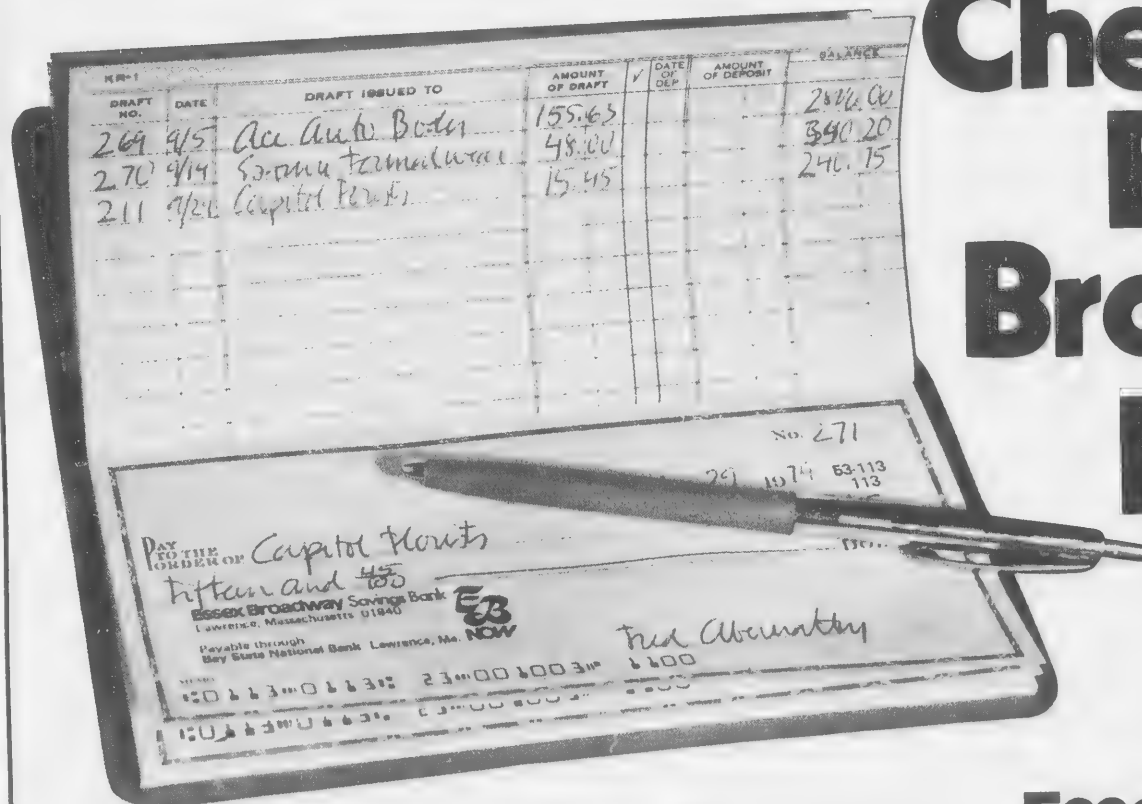 Che
Bro
KR-1
DRAFT NO. DATE DRAFT ISSUED TO AMOUNT OF DRAFT √ DATE OF DEP AMOUNT OF DEPOSIT BALANCE
269 9/5 Ace Auto Body 155.63
270 9/14 Formalwear 48.00 390.20
271 Capitol Florists 15.45
No. 271
29 1974 53-113
113
PAY TO THE ORDER OF Capitol Florists
Fifteen and 45/100
Essex Broadway Savings Bank EB NOW
Lawrence, Massachusetts 01840
Payable through
Bay State National Bank Lawrence, Ma.
Fred Abernathy
MEMO
⑆0113⑉0113⑆ 23⑉001003⑈ 1100
Esse